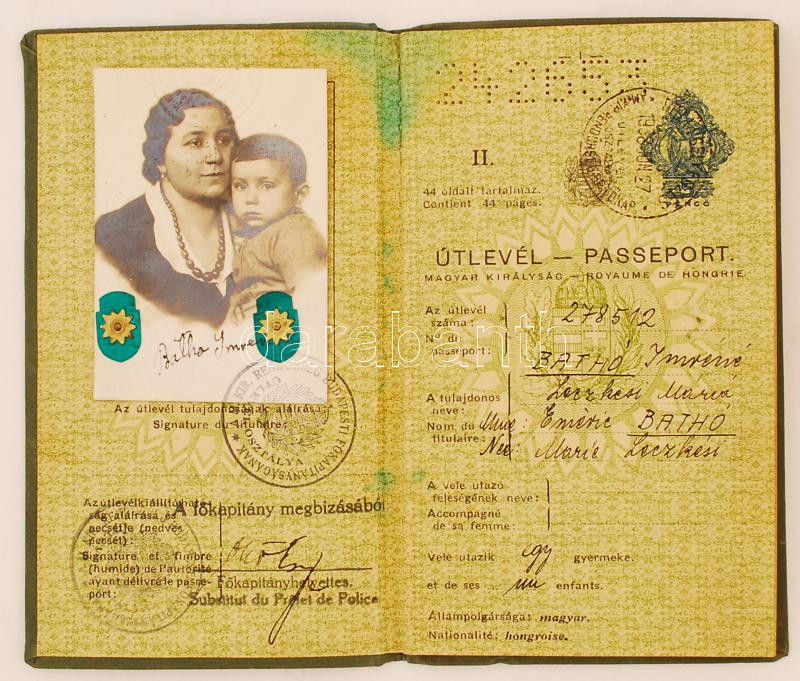 Batho Imrené
Az útlevél tulajdonosának aláírása:
Signature du titulaire:
Az útlevélkiállító ható-
ság aláírása, és
pecsétje (nedves
pecsét):
Signature et timbre
(humide) de l'autorité
ayant délivré le passe-
port:
A főkapitány megbizásából
Főkapitányhelyettes.
Substitut du Préfet de Police
242657
II.
44 oldalt tartalmaz.
Contient 44 pages.
5
PENGŐ
ÚTLEVÉL — PASSEPORT.
MAGYAR KIRÁLYSÁG — ROYAUME DE HONGRIE
Az útlevél
száma:
No du
passeport:
278512
A tulajdonos
neve:
Nom du
titulaire:
BATHÓ Imrené
Leczkési Mária
Mme: Eméric BATHO
Née: Marie Leczkési
A vele utazó
feleségének neve:
Accompagné
de sa femme:
Vele utazik egy gyermeke.
et de ses un enfants.
Állampolgársága: magyar.
Nationalité: hongroise.
darabanth